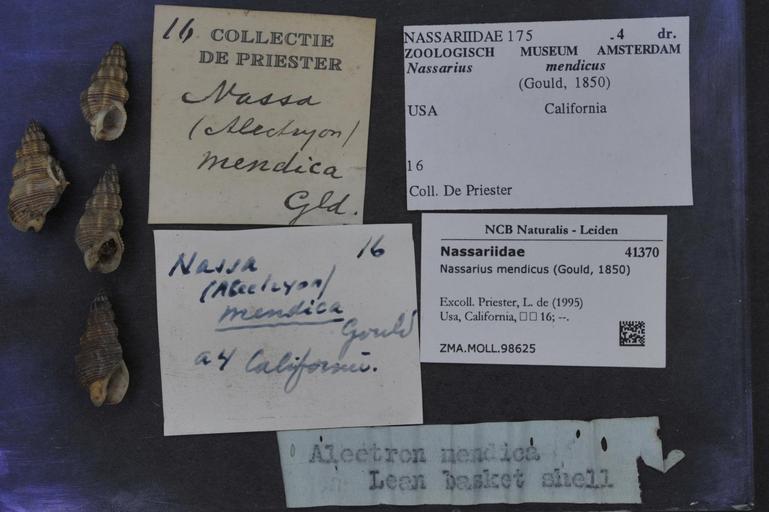 16 COLLECTIE
DE PRIESTER
Nassa
(Alectryon)
mendica
Gld.
NASSARIIDAE 175 .4 dr.
ZOOLOGISCH MUSEUM AMSTERDAM
Nassarius mendicus
(Gould, 1850)
USA California
16
Coll. De Priester
Nassa 16
(Alectryon)
mendica
Gould
a4 Californië.
NCB Naturalis - Leiden
Nassariidae 41370
Nassarius mendicus (Gould, 1850)
Excoll. Priester, L. de (1995)
Usa, California, □□ 16; --.
ZMA.MOLL.98625
Alectron mendica
Lean basket shell